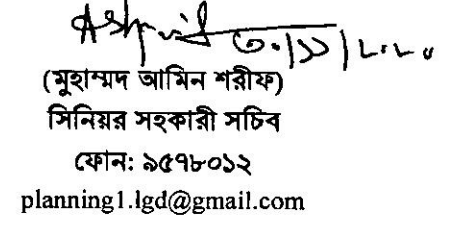 ৩০/১১/২০২০
(মুহাম্মদ আমিন শরীফ)
সিনিয়র সহকারী সচিব
ফোন: ৯৫৭৮০১২
planning1.lgd@gmail.com